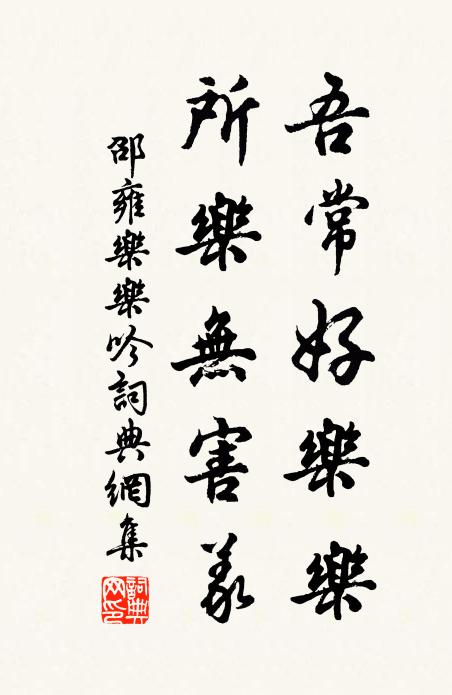 吾常好樂樂
所樂無害義
邵雍樂樂吟詞典網集
詞典網印